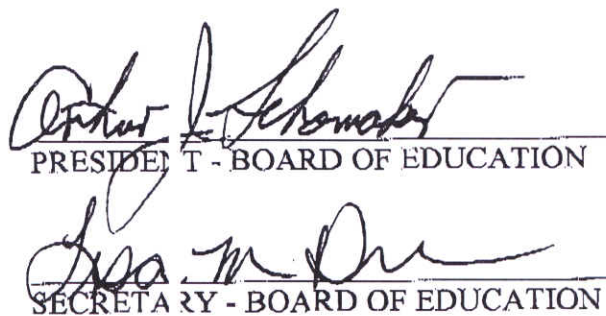 Arthur J. Schomaker
PRESIDENT - BOARD OF EDUCATION
Lisa M
SECRETARY - BOARD OF EDUCATION